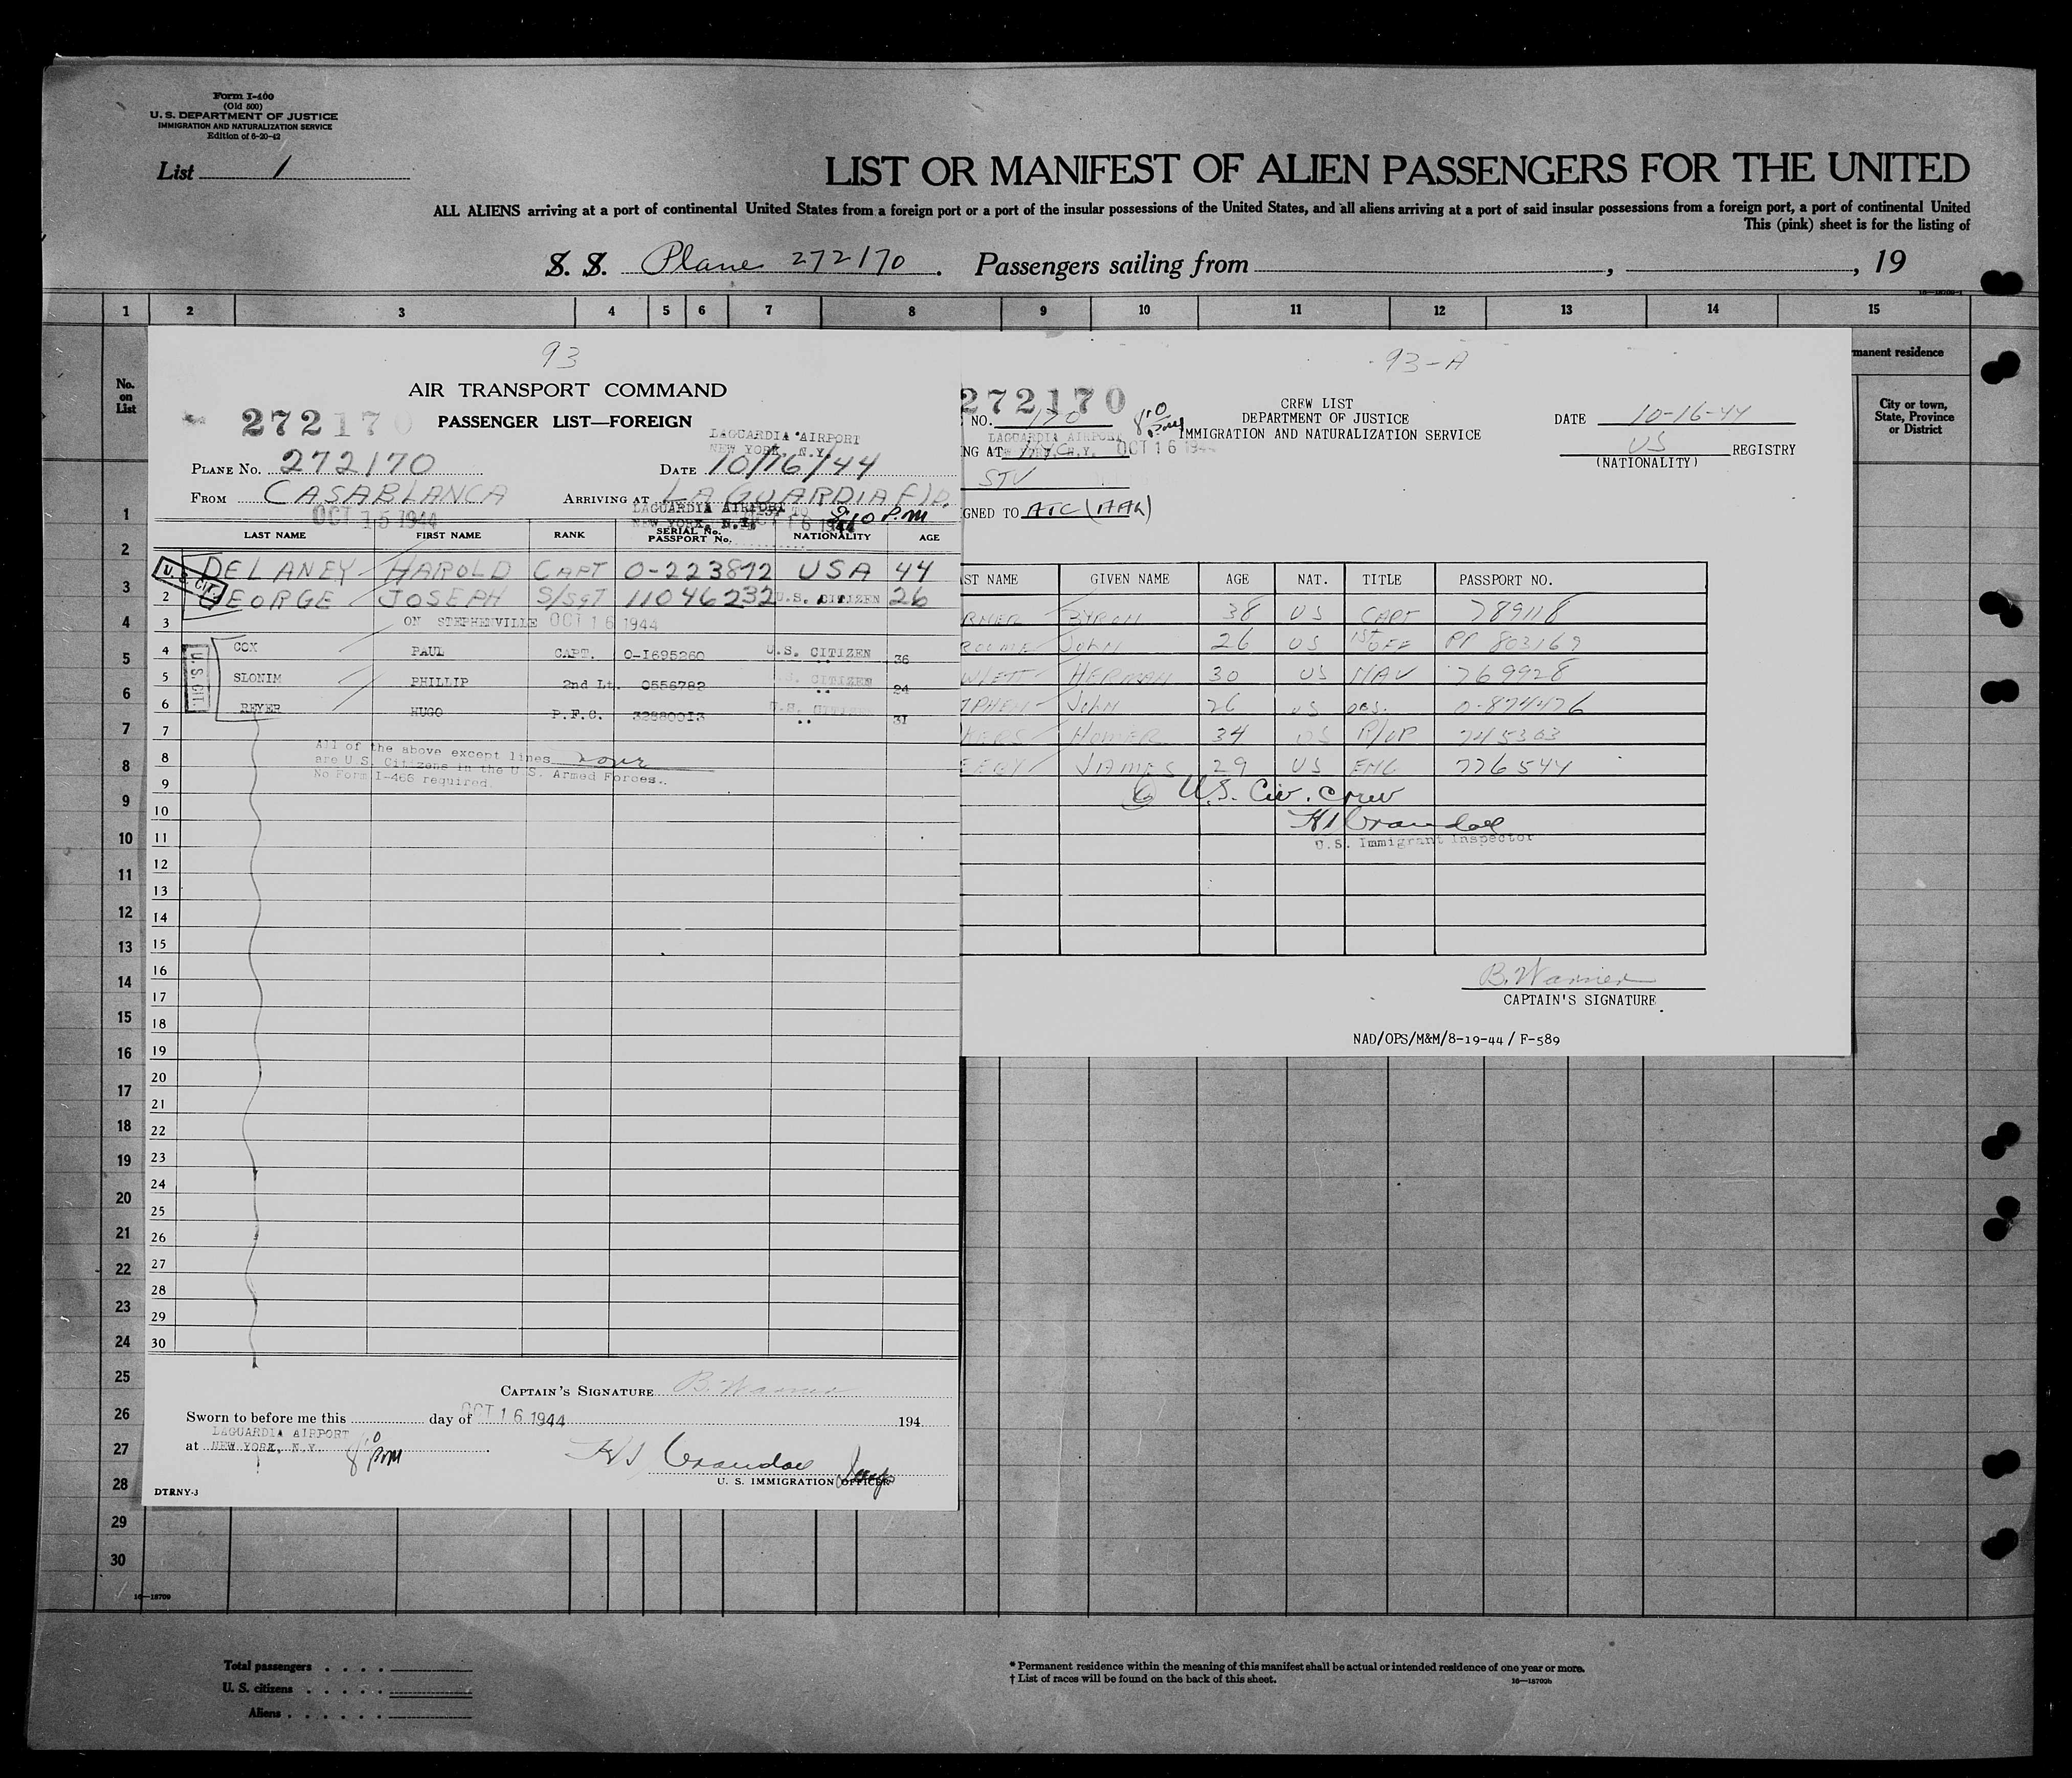 Form I-400
(Old 500)
U. S. DEPARTMENT OF JUSTICE
IMMIGRATION AND NATURALIZATION SERVICE
Edition of 6-20-42
List 1
LIST OR MANIFEST OF ALIEN PASSENGERS FOR THE UNITED
ALL ALIENS arriving at a port of continental United States from a foreign port or a port of the insular possessions of the United States, and all aliens arriving at a port of said insular possessions from a foreign port, a port of continental United
This (pink) sheet is for the listing of
S. S. Plane 272170. Passengers sailing from , , 19
1 2 3 4 5 6 7 8 9 10 11 12 13 14 15
No. on List
manent residence
City or town, State, Province or District
93
AIR TRANSPORT COMMAND
272170 PASSENGER LIST—FOREIGN
LAGUARDIA AIRPORT
NEW YORK, N.Y.
PLANE NO. 272170 DATE 10/16/44
FROM CASABLANCA ARRIVING AT LA GUARDIA FLD.
OCT 15 1944 LAGUARDIA AIRPORT
NEW YORK, N.Y. OCT 16 1944 8:10 P.M
LAST NAME FIRST NAME RANK SERIAL No. PASSPORT No. NATIONALITY AGE
U.S. CIT.
DELANEY HAROLD CAPT 0-223872 USA 44
2 GEORGE JOSEPH S/SGT 11046232 U.S. CITIZEN 26
3 ON STEPHENVILLE OCT 16 1944
U.S. CIT.
4 COX PAUL CAPT. 0-1695260 U.S. CITIZEN 36
5 SLONIM PHILLIP 2nd Lt. 0556782 U.S. CITIZEN " 24
6 REYER HUGO P.F.C. 32880013 U.S. CITIZEN " 31
7
8 All of the above except lines none
are U.S. Citizens in the U.S. Armed Forces.
No Form I-466 required.
9
10
11
12
13
14
15
16
17
18
19
20
21
22
23
24
25
26
27
28
29
30
CAPTAIN'S SIGNATURE B. Warner
Sworn to before me this day of OCT 16 1944 194
LAGUARDIA AIRPORT
at NEW YORK, N.Y. 8:10 PM
Crandall
U. S. IMMIGRATION OFFICER
DTRNY-3
93-A
272170
NO. 170 8:10 pm
CREW LIST
DEPARTMENT OF JUSTICE
IMMIGRATION AND NATURALIZATION SERVICE
DATE 10-16-44
US REGISTRY
(NATIONALITY)
LAGUARDIA AIRPORT
NG AT N.Y. OCT 16 1944
STV
GNED TO ATC (AAL)
ST NAME GIVEN NAME AGE NAT. TITLE PASSPORT NO.
RNER BYRON 38 US CAPT 789118
JOHN 26 US 1ST OFF PP 803169
WLETT HERMAN 30 US NAV 769928
PHEN JOHN 26 US OBS. 0-874476
KERS HOMER 34 US R/OP 745303
JAMES 29 US ENG 776544
6 U.S. Civ. Crew
Crandall
U.S. Immigrant Inspector
B. Warner
CAPTAIN'S SIGNATURE
NAD/OPS/M&M/8-19-44 / F-589
1
2
3
4
5
6
7
8
9
10
11
12
13
14
15
16
17
18
19
20
21
22
23
24
25
26
27
28
29
30
16—18709
Total passengers
U. S. citizens
Aliens
* Permanent residence within the meaning of this manifest shall be actual or intended residence of one year or more.
† List of races will be found on the back of this sheet.
16—18709b